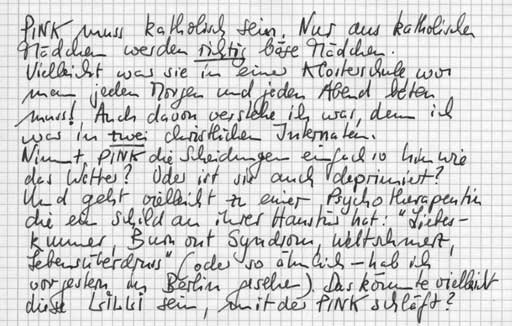 PINK muss katholisch sein. Nur aus katholischen
Mädchen werden richtig böse Mädchen.
Vielleicht was sie in einer Klosterschule wo
man jeden Morgen und jeden Abend beten
muss! Auch davon verstehe ich was, denn ich
was in zwei christlichen Internaten.
Nimmt PINK die Scheidungen einfach so hin wie
das Wetter? Oder ist sie auch deprimiert?
Und geht vielleicht zu einer Psychotherapeutin
die ein Schild an ihrer Haustür hat: "Liebes-
kummer, Burn out Syndrom, Weltschmerz,
Lebensüberdruss" (oder so ähnlich – hab ich
vorgestern in Berlin gesehen). Das könnte vielleicht
diese sein, mit der PINK schläft?